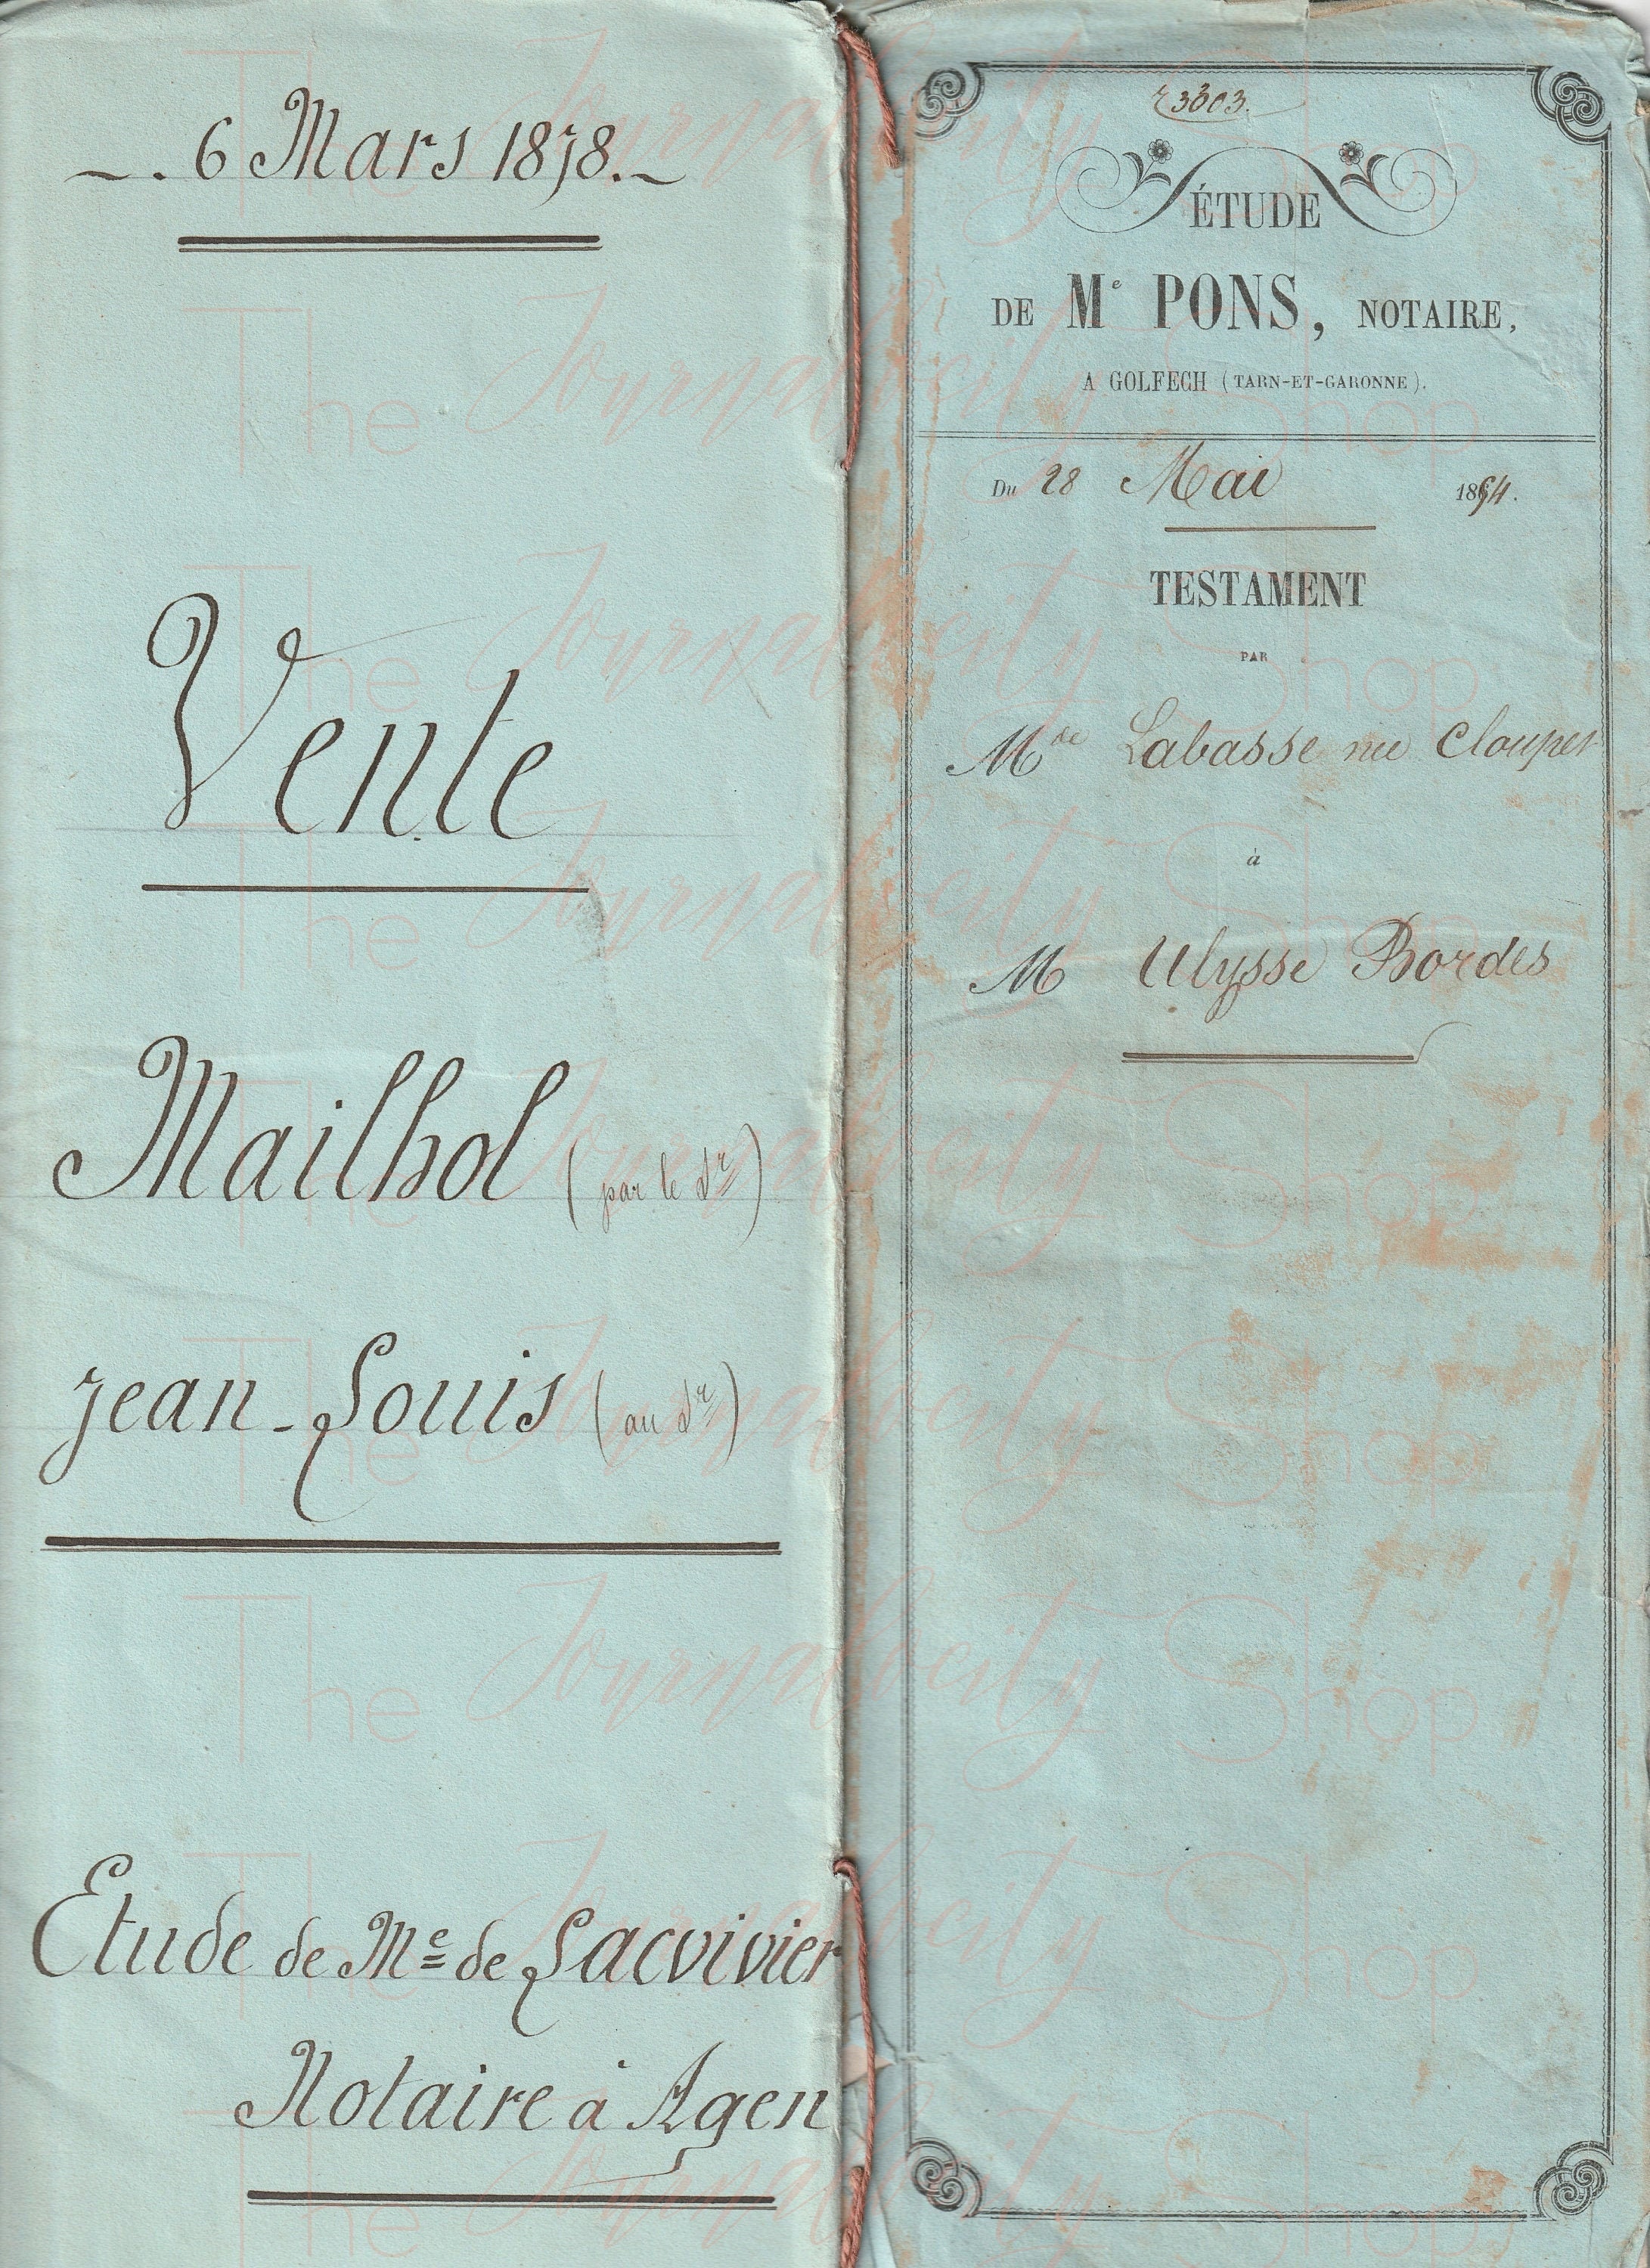 6 Mars 1878.
Vente
Mailhol (par le Sr)
Jean-Louis (au Sr)
Etude de Me de Lacvivier
Notaire à Agen
3303.
ÉTUDE
DE Me PONS, NOTAIRE,
A GOLFECH (TARN-ET-GARONNE).
Du 28 Mai 18 4.
TESTAMENT
PAR
Mde Labasse née
à
M Ulysse Bordes
The Journalocity Shop